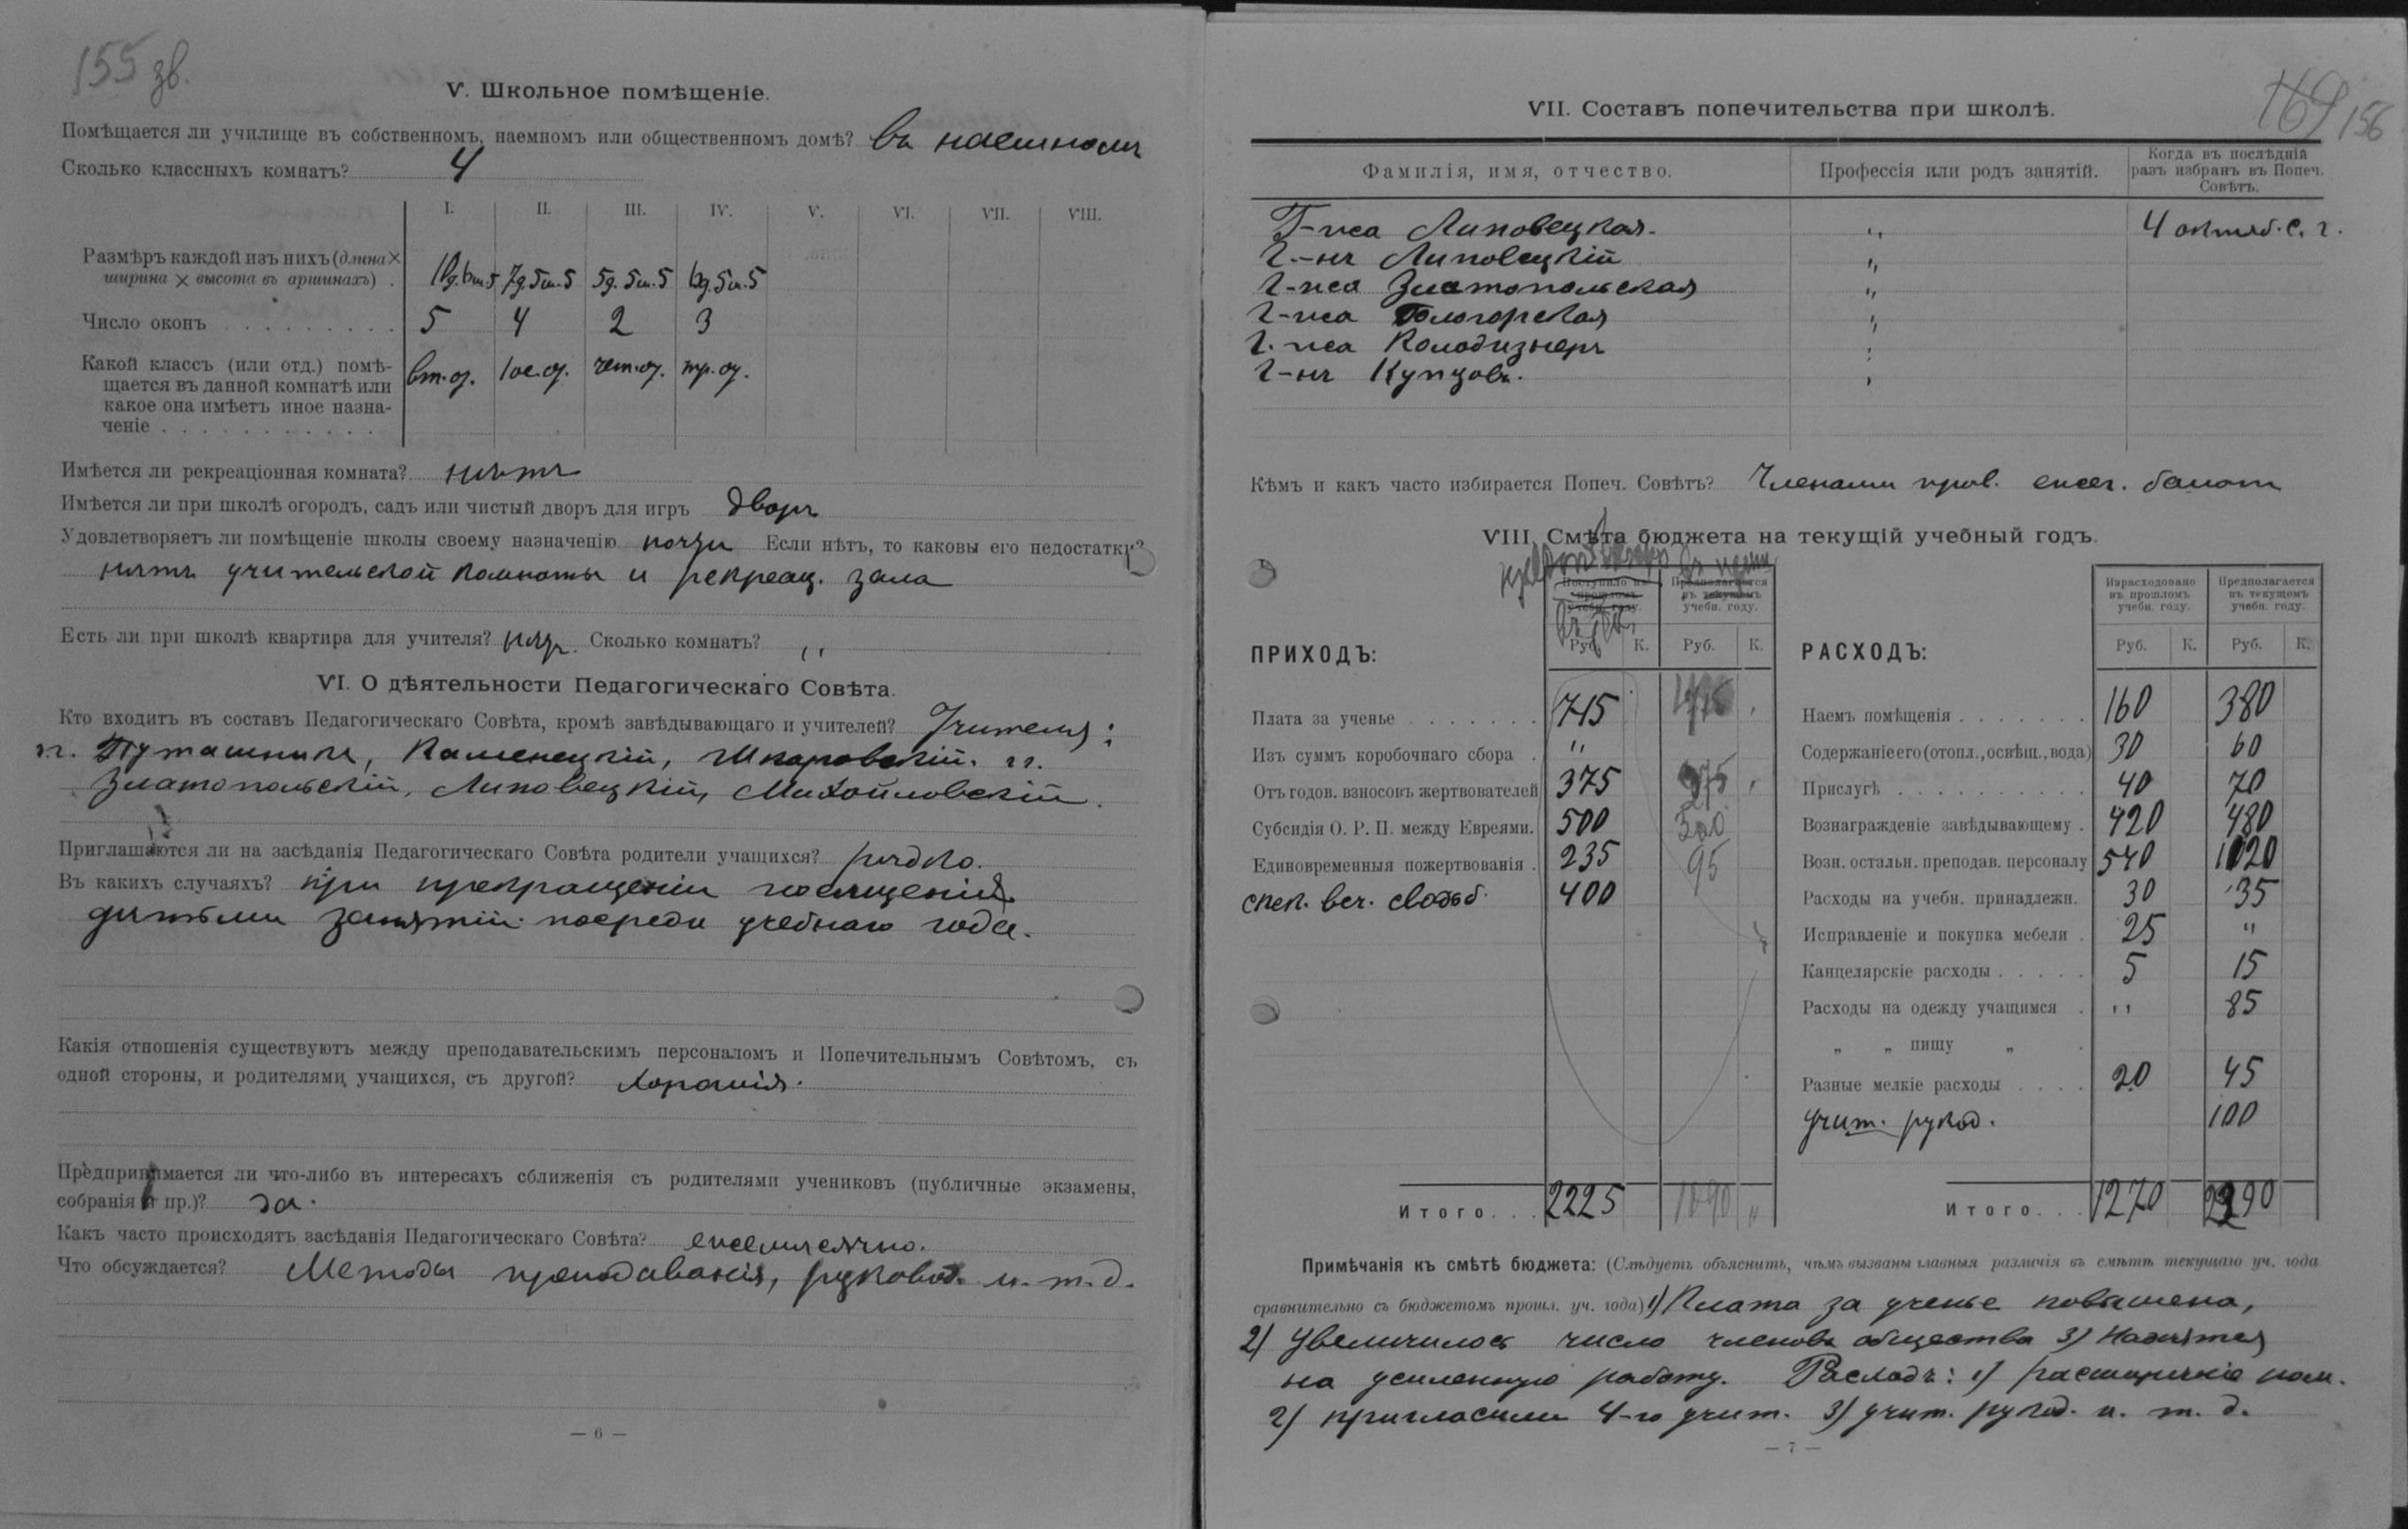 155 зв.
V. Школьное помѣщеніе.
Помѣщается ли училище въ собственномъ, наемномъ или общественномъ домѣ? въ наемномъ
Сколько классныхъ комнатъ? 4
I. II. III. IV. V. VI. VII. VIII.
Размѣръ каждой изъ нихъ (длина ×
ширина × высота въ аршинахъ) . 7д. 5ш. 5 5д. 5ш. 5 6д. 5ш. 5
Число оконъ . . . . . . . . . 5 4 2 3
Какой классъ (или отд.) помѣ-
щается въ данной комнатѣ или вт. от. 1ое. от. чет. от. тр. от.
какое она имѣетъ иное назна-
ченіе . . . . . . . . . . .
Имѣется ли рекреаціонная комната? нѣтъ
Имѣется ли при школѣ огородъ, садъ или чистый дворъ для игръ дворъ
Удовлетворяетъ ли помѣщеніе школы своему назначенію почти Если нѣтъ, то каковы его недостатки?
нѣтъ учительской комнаты и рекреац. зала
Есть ли при школѣ квартира для учителя? нѣтъ. Сколько комнатъ? ,,
VI. О дѣятельности Педагогическаго Совѣта.
Кто входитъ въ составъ Педагогическаго Совѣта, кромѣ завѣдывающаго и учителей? Учителя:
Каменецкій, Шкаровскій. гг.
Златопольскій, Липовецкій, Михайловскій.
Приглашаются ли на засѣданія Педагогическаго Совѣта родители учащихся? рѣдко.
Въ какихъ случаяхъ? при прекращеніи посѣщенія
дѣтьми занятій посреди учебнаго года.
Какія отношенія существуютъ между преподавательскимъ персоналомъ и Попечительнымъ Совѣтомъ, съ
одной стороны, и родителями учащихся, съ другой? Хорошія.
Предпринимается ли что-либо въ интересахъ сближенія съ родителями учениковъ (публичные экзамены,
собранія и пр.)? да.
Какъ часто происходятъ засѣданія Педагогическаго Совѣта? ежемѣсячно.
Что обсуждается? Методы преподаванія, руковод. и. т. д.
— 6 —
169 156
VII. Составъ попечительства при школѣ.
Фамилія, имя, отчество. Профессія или родъ занятій. Когда въ послѣдній
разъ избранъ въ Попеч.
Совѣтъ.
Г-жа Липовецкая. ,, 4 октяб. с. г.
Г-нъ Липовецкій ,,
Г-жа Златопольская ,,
Г-жа Бѣлогорская ,,
Г-жа Колодизнеръ
Г-нъ Купцовъ.
Кѣмъ и какъ часто избирается Попеч. Совѣтъ? Членами прав. ежег. балот
VIII. Смѣта бюджета на текущій учебный годъ.
Поступило въ прошломъ учебн. году. Предполагается въ текущемъ учебн. году. Израсходовано въ прошломъ учебн. году. Предполагается въ текущемъ учебн. году.
ПРИХОДЪ: Руб. К. Руб. К. РАСХОДЪ: Руб. К. Руб. К.
Плата за ученье . . . . . . . 715 Наемъ помѣщенія . . . . . . . 160 380
Изъ суммъ коробочнаго сбора . ,, Содержаніе его (отопл., освѣщ., вода) 30 60
Отъ годов. взносовъ жертвователей 375 Прислугѣ . . . . . . . . . . 40 70
Субсидія О. Р. П. между Евреями. 500 500 Вознагражденіе завѣдывающему . 420 480
Единовременныя пожертвованія . 235 95 Возн. остальн. преподав. персоналу 540 1020
спек. веч. свадьб. 400 Расходы на учебн. принадлежн. 30 35
Исправленіе и покупка мебели . 25 ,,
Канцелярскіе расходы . . . . . 5 15
Расходы на одежду учащимся . ,, 85
„ „ пищу „ .
Разные мелкіе расходы . . . . 20 45
учит. рукод. 100
Итого. . . 2225 Итого. . . 1270 2290
Примѣчанія къ смѣтѣ бюджета: (Слѣдуетъ объяснить, чѣмъ вызваны главныя различія въ смѣтѣ текущаго уч. года
сравнительно съ бюджетомъ прошл. уч. года) 1) Плата за ученье повышена,
2) увеличилось число членовъ общества 3) Надѣятся
на усиленную работу. Расходъ: 1) расширеніе пом.
2) пригласили 4-го учит. 3) учит. рукод. и. т. д.
— 7 —